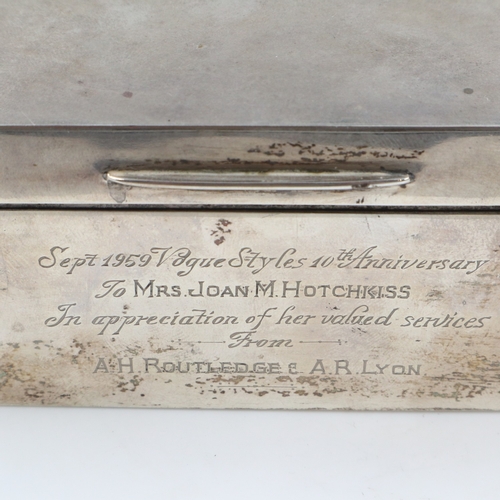 Sept 1959 Vogue Styles 10th Anniversary
To MRS. JOAN M. HOTCHKISS
In appreciation of her valued services
From
A.H. ROUTLEDGE & A.R. LYON